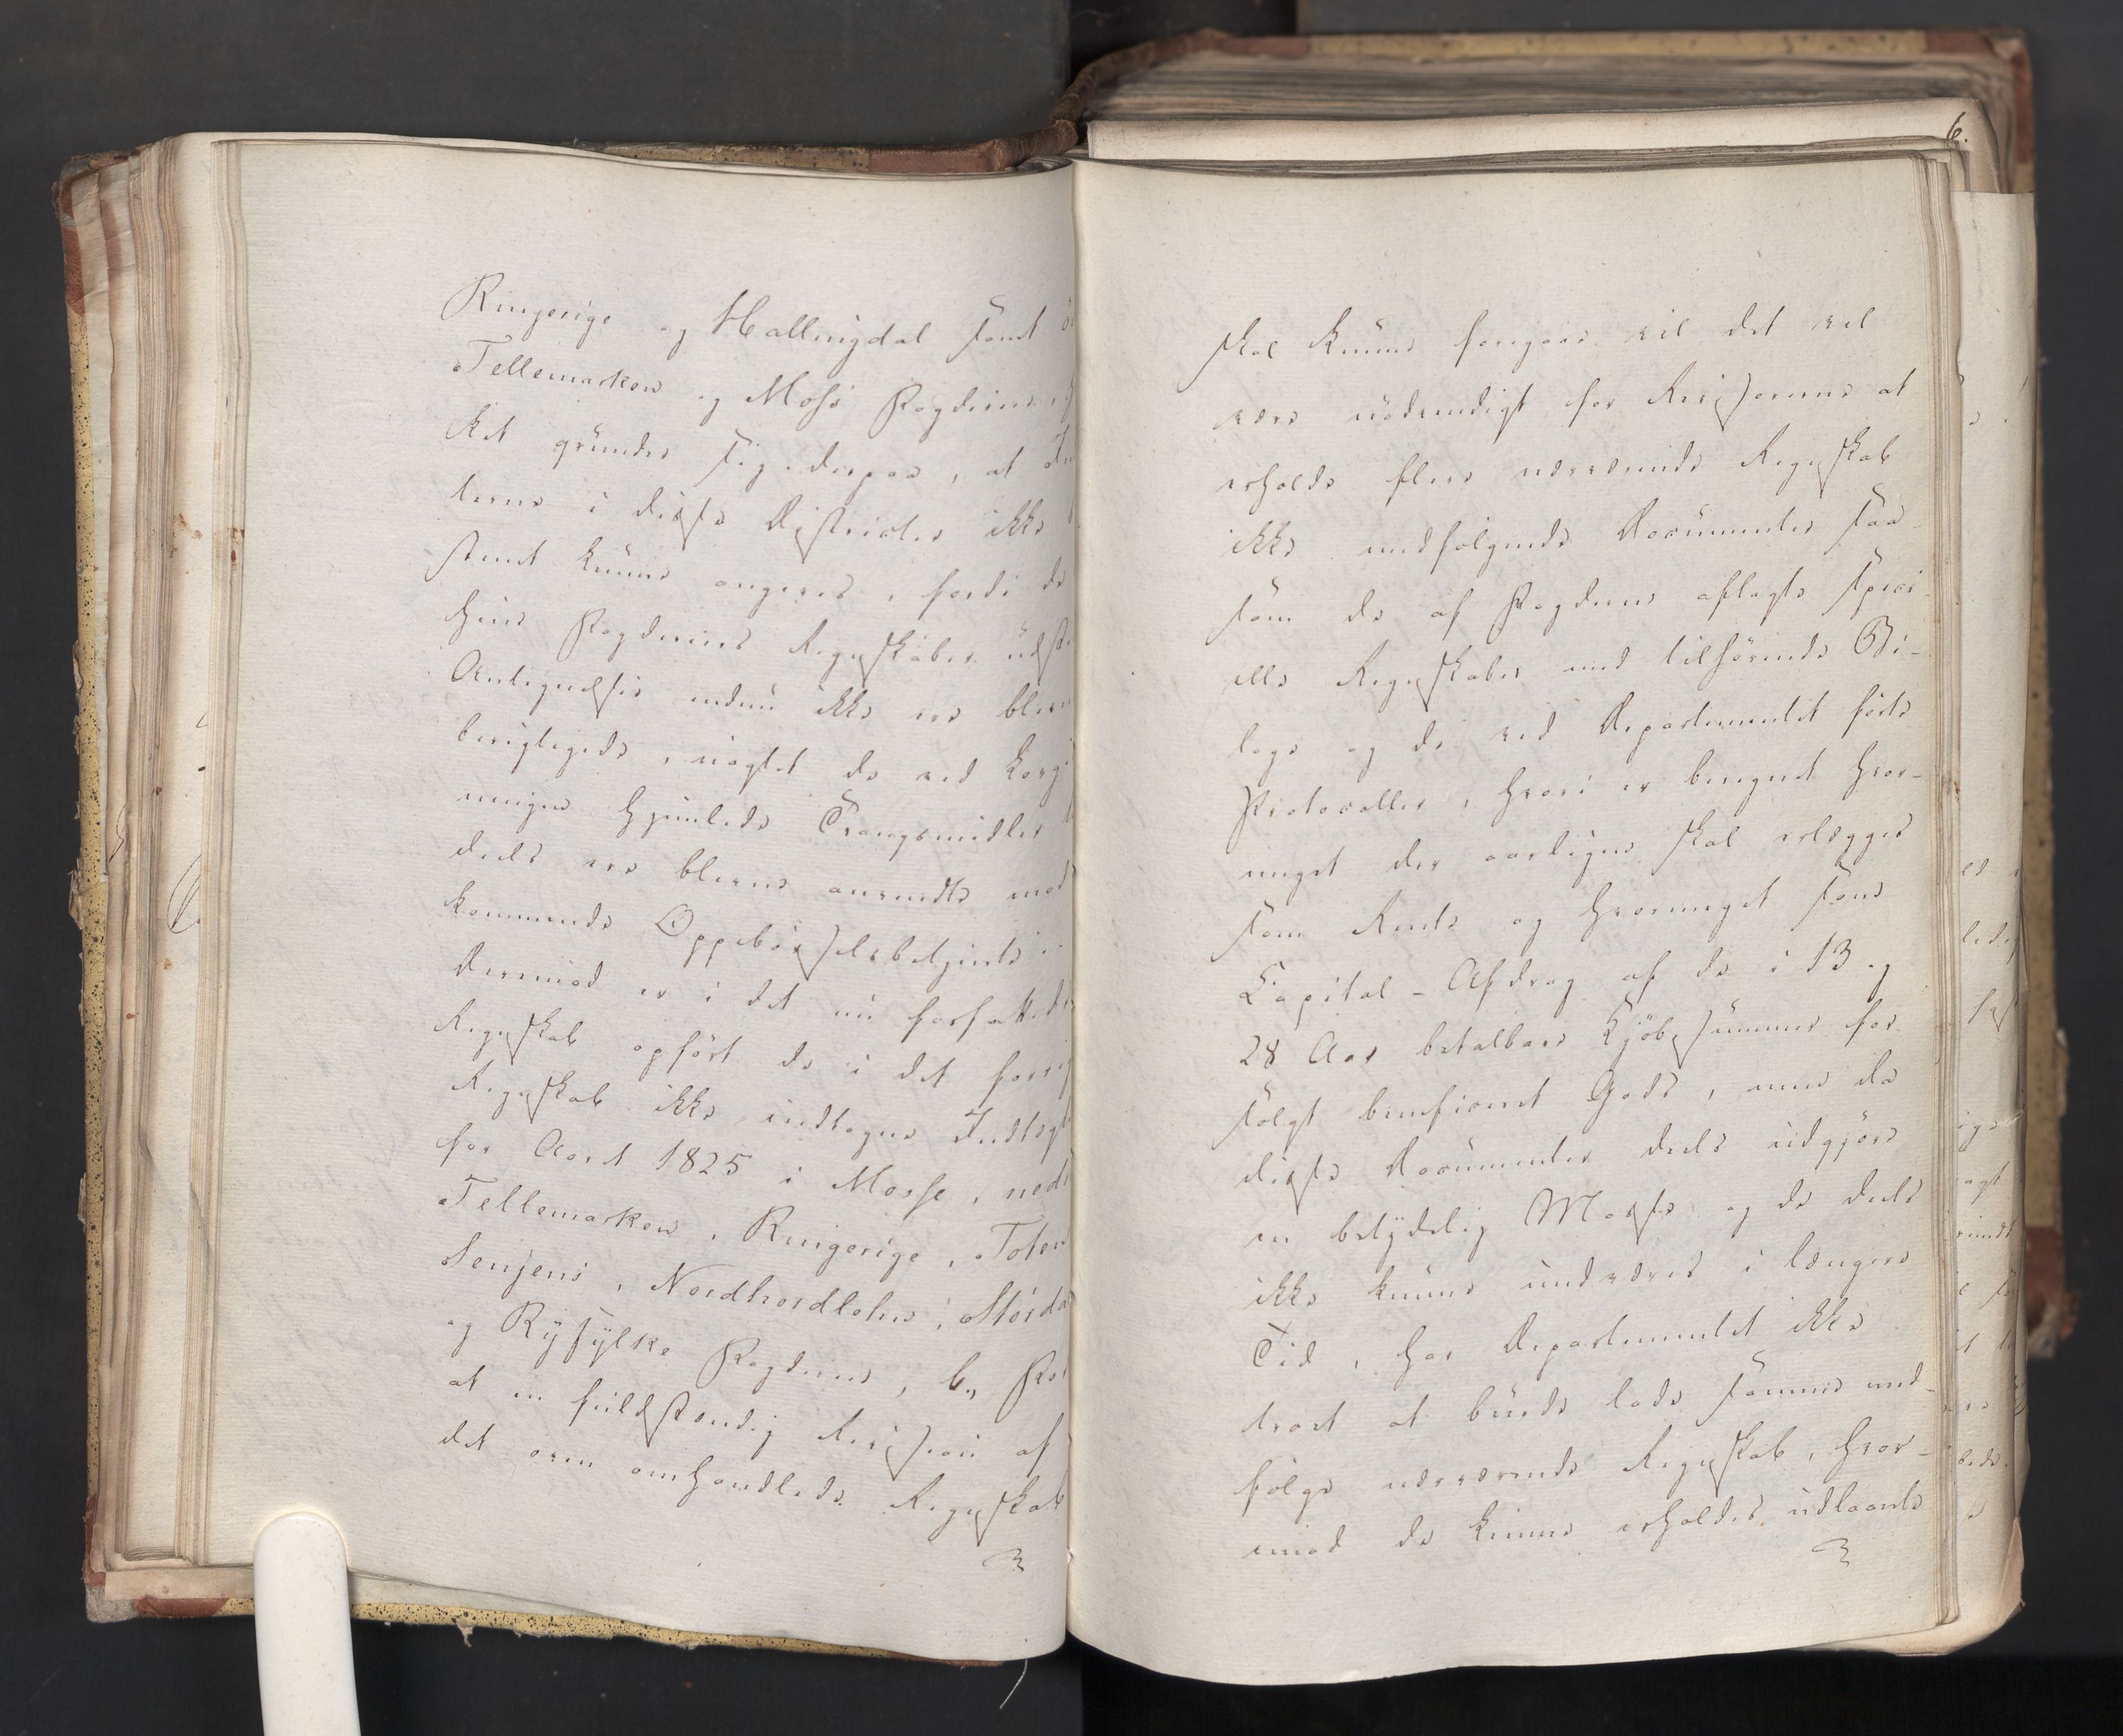 Ringerige og Hallingdal samt
Tellemarken og Moss Fogderier,
ket grunder sig derpaa, at
terne i disse Districter ikke
stemt kunne angives, fordi de
hine Fogderiers Regnskaber udst
Antegnelser endnu ikke ere blevn
berigtigede, uagtet de ved Lovgi
ningen hjemlede Tvangsmidler
deels ere blevne anvendte mod
kommende Oppebørselsbetjente
Derimod er i det nu forfattede
Regnskab opført de i det forrig
Regnskab ikke indtagne Indtægt
for Aaret 1825 i Mosse, nedr
Tellemarken, Ringerige, Toten
Senjens, Nordhordlehns, Størda
og Ryfylke Fogderier, b., For
at en fuldstændig Revision af
det oven omhandlede Regnskab
6.
skal kunne foregaae vil det vel
være nødvendigt for Revisorerne at
erholde flere nærværende Regnskab
ikke medfølgende Documenter saa-
som de af Fogderne aflagte speci-
elle Regnskaber med tilhørende Bi-
lage og de ved Departementet førte
Protocoller, hvori er beregnet hvor-
meget der aarligen skal erlægges
som Rente og hvormeget som
Capital-Afdrag af de i 13 og
28 Aar betalbare Kjøbesummer for
solgt beneficeret Gods, men da
disse Documenter deels udgjøre
en betydelig Masse og de deels
ikke kunne undværes i længere
Tid, har Departementet ikke
troet at burde lade samme med-
følge nærværende Regnskab, hvor-
imod de kunne erholdes udlaante